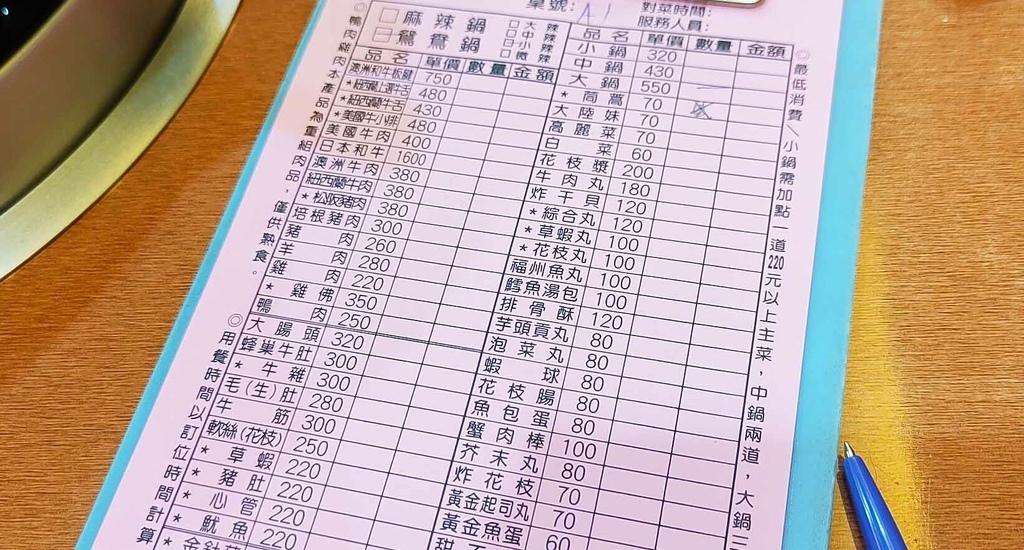 桌號: A1 對菜時間:
服務人員:
□ 麻辣鍋 □大辣 □中辣
□ 鴛鴦鍋 □小辣 □微辣
品名 單價 數量 金額
澳洲和牛板腱 750
*紐西蘭牛舌 430
*美國牛小排 480
美國牛肉 400
日本和牛 1600
澳洲牛肉 380
紐西蘭牛肉 380
*松阪豬肉 380
培根豬肉 300
豬肉 260
羊肉 280
雞肉 220
*雞佛 350
鴨肉 250
大腸頭 320
蜂巢牛肚 300
*牛雜 300
毛(生)肚 280
牛筋 300
軟絲(花枝) 250
*草蝦 220
*豬肚 220
*心管 220
*魷魚
品名 單價 數量 金額
小鍋 320
中鍋 430
大鍋 550
*茼蒿 70
大陸妹 70
高麗菜 70
白菜 60
花枝漿 200
牛肉丸 180
炸干貝 120
*綜合丸 120
*草蝦丸 100
*花枝丸 100
福州魚丸 100
鱈魚湯包 100
排骨酥 120
芋頭貢丸 80
泡菜丸 80
蝦球 80
花枝腸 80
魚包蛋 80
蟹肉棒 100
芥末丸 80
炸花枝 70
黃金起司丸 70
黃金魚蛋 60
◎最低消費/小鍋需加點一道220元以上主菜,中鍋兩道,大鍋三
◎鴨肉雞肉本產品為重組肉品,僅供熱食。
◎用餐時間以訂位時間計算